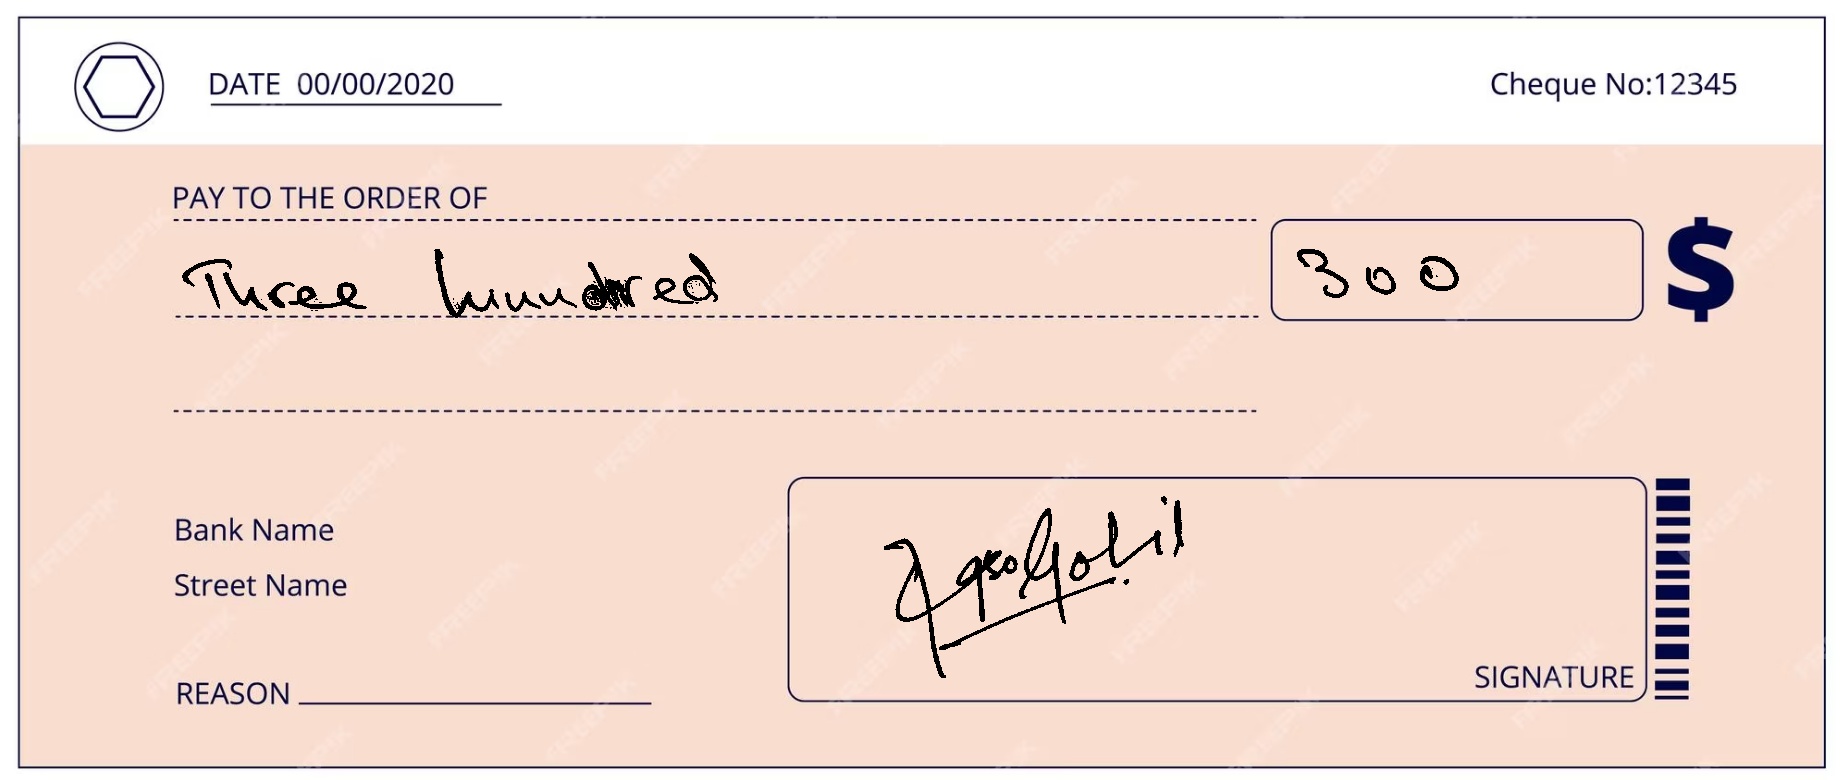 DATE 00/00/2020
Cheque No:12345
PAY TO THE ORDER OF
Three hundred
300
$
Bank Name
Street Name
REASON
SIGNATURE